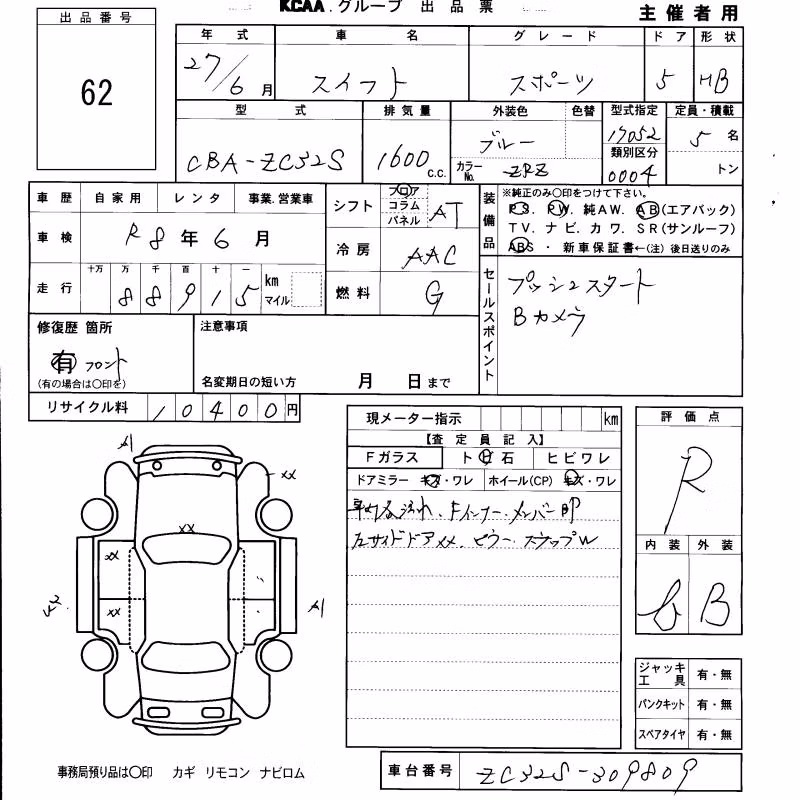 KCAA.グループ 出品票
主催者用
出品番号
62
年式 車名 グレード ドア 形状
27/6月 スイフト スポーツ 5 HB
型式 排気量 外装色 色替 型式指定 定員・積載
CBA-ZC32S 1600 C.C. ブルー 17052 5名
カラーNo. ZRZ 類別区分 0004 トン
車歴 自家用 レンタ 事業.営業車
シフト フロア コラム パネル AT
車検 R8年6月
冷房 AAC
走行 十万 万 千 百 十 一 km マイル
88915
燃料 G
装備品 ※純正のみ〇印をつけて下さい。
PS. PW. 純AW. AB(エアバック)
TV. ナビ. カワ. SR(サンルーフ)
ABS ・ 新車保証書←(注) 後日送りのみ
セールスポイント
プッシュスタート
Bカメラ
修復歴 箇所
有 フロント
(有の場合は〇印を)
注意事項
名変期日の短い方 月 日まで
リサイクル料 10400円
現メーター指示 km
【査定員記入】
Fガラス トビ石 ヒビワレ
ドアミラー キズ・ワレ ホイール(CP) キズ・ワレ
汚れ、Fインナー、メンバー
左サイドドアxx. ピラー・ステップW
評価点
R
内装 外装
b B
A1
xx
xx
xx
xx
A1
ジャッキ工具 有・無
パンクキット 有・無
スペアタイヤ 有・無
事務局預り品は〇印 カギ リモコン ナビロム
車台番号 ZC32S-309809